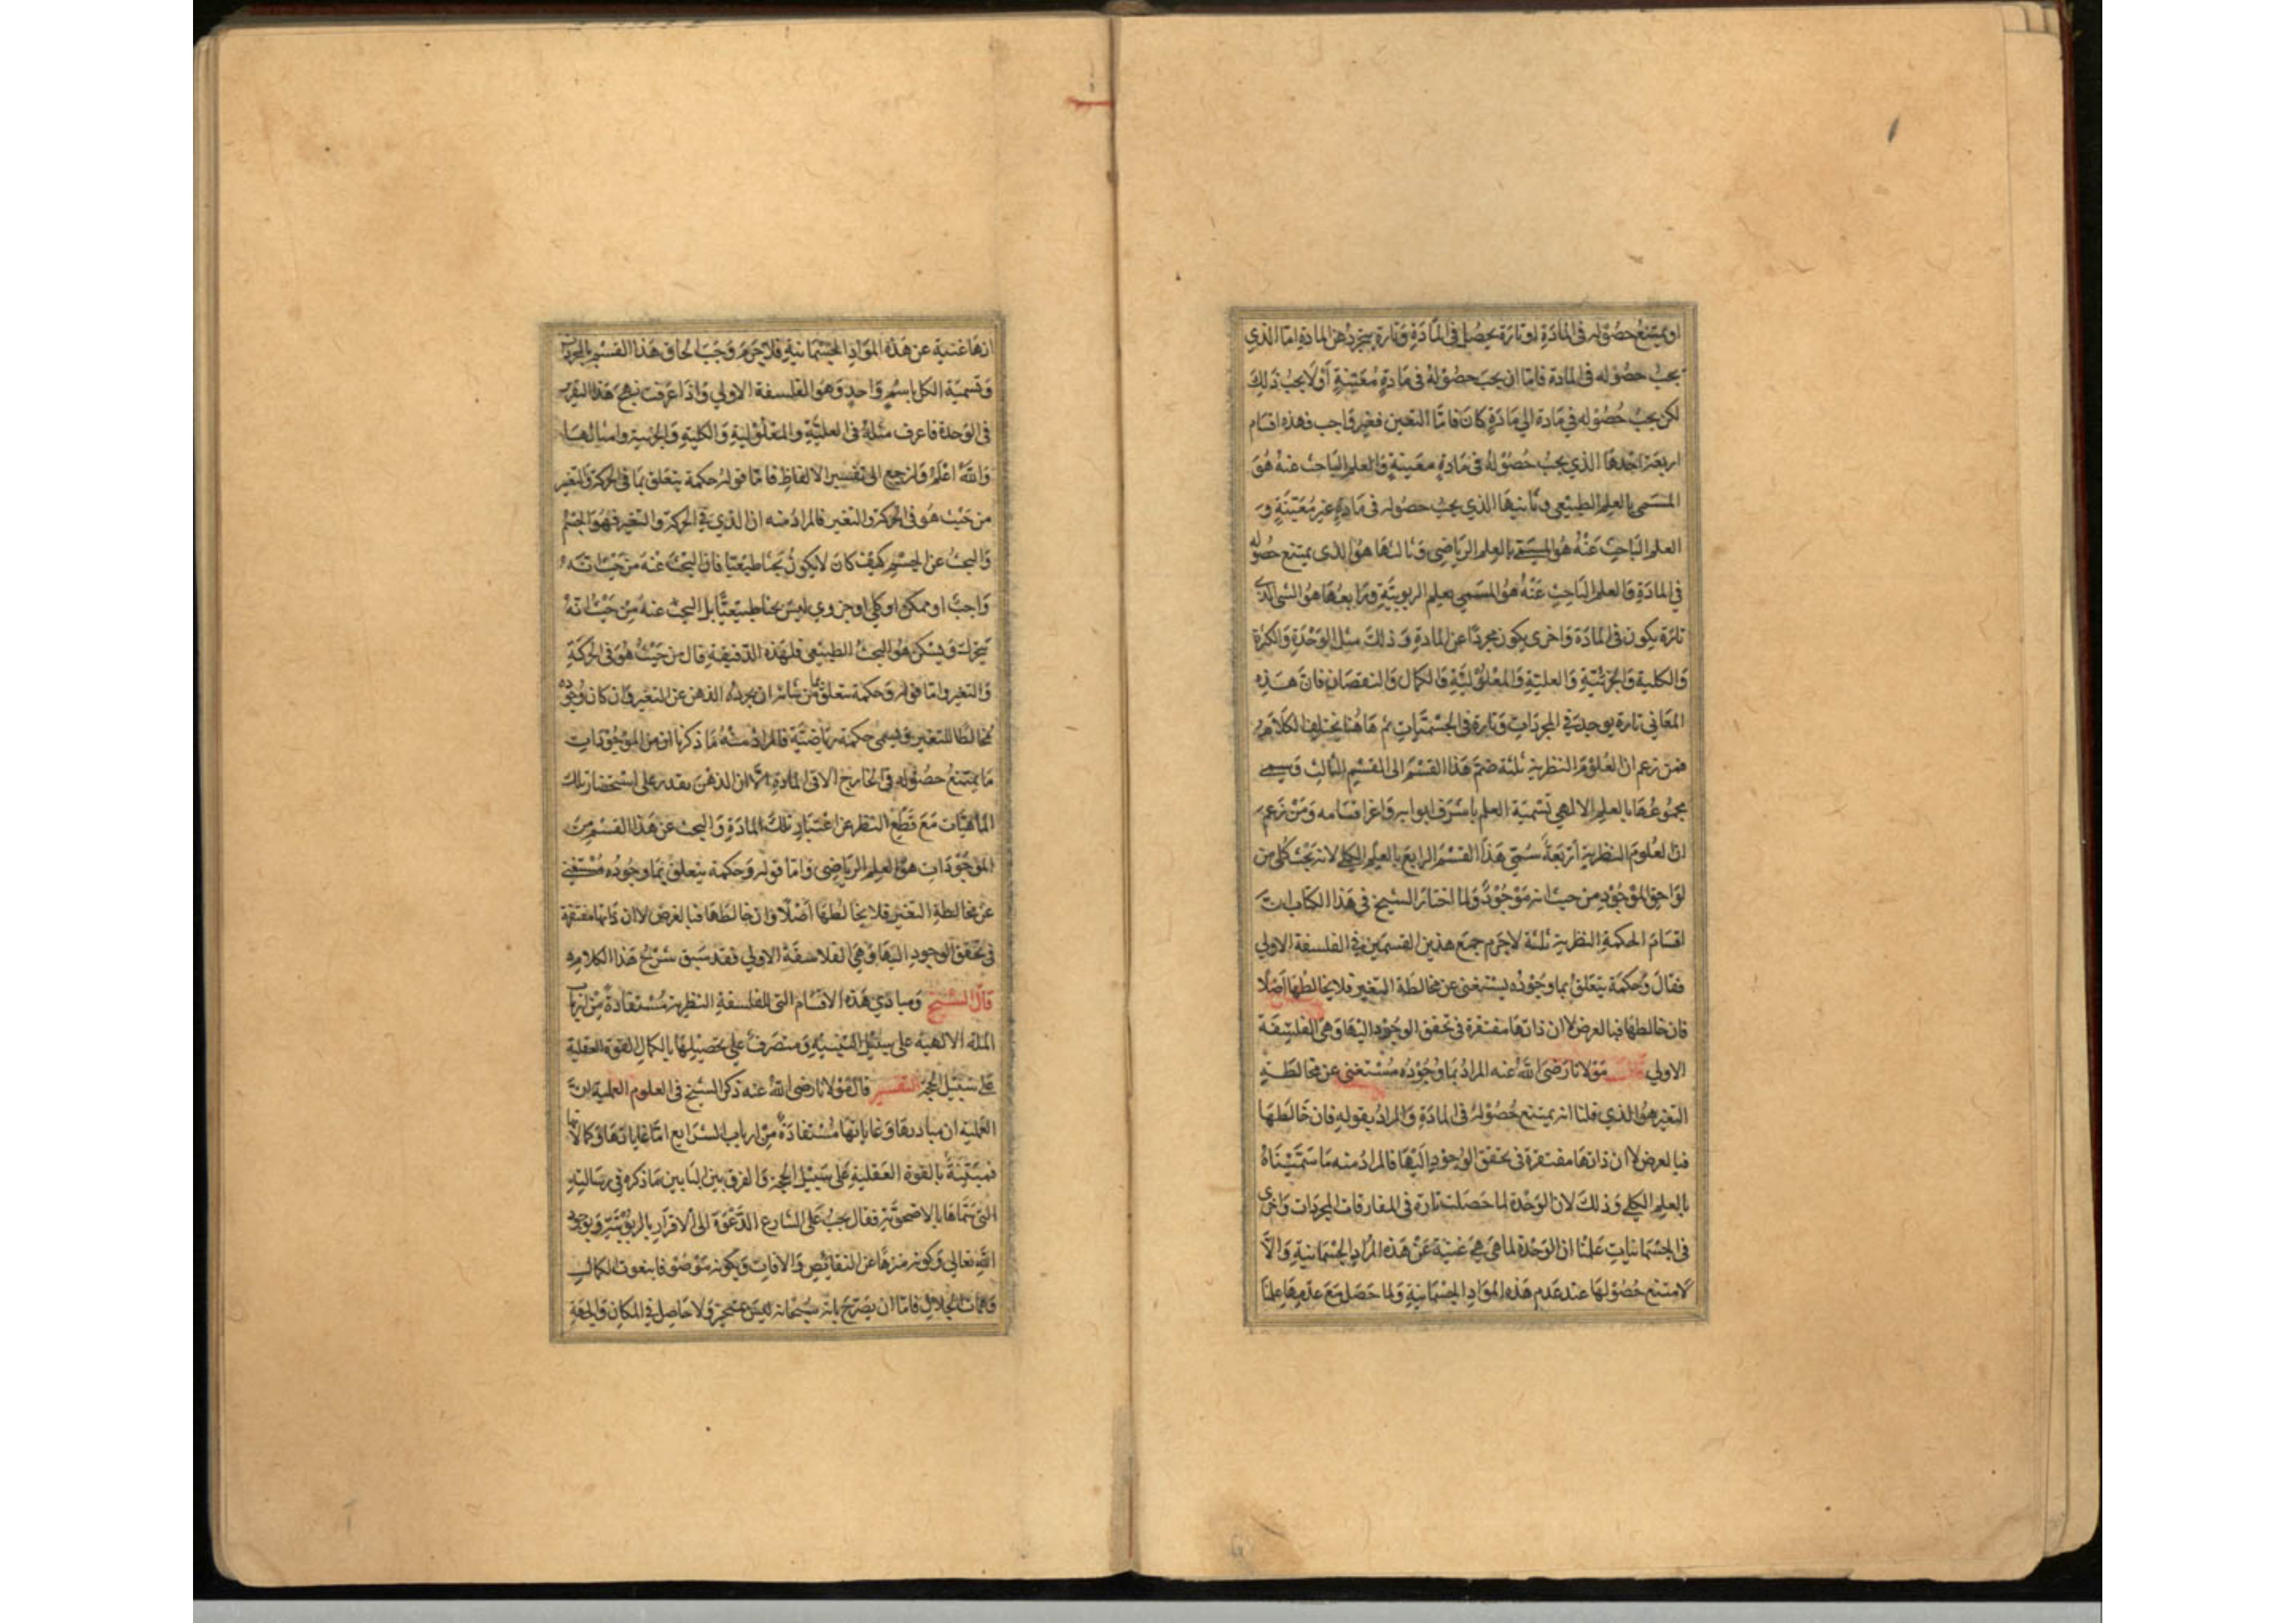 او يمتنع حصوله في المادة او تارة يحصل في المادة وتارة يتجرد عن المادة اما الذي
يجب حصوله في المادة فاما ان يجب حصوله في مادة معينة أو لا يجب ذلك
لكن يجب حصوله في مادة اي مادة كان فاما التعين فغير واجب فهذه اقسام
اربعة احدها الذي يجب حصوله في مادة معينة والعلم الباحث عنه هو
المسمى بالعلم الطبيعي وثانيها الذي يجب حصوله في مادة غير معينة و
العلم الباحث عنه هو المسمى بالعلم الرياضي وثالثها هو الذي يمتنع حصوله
في المادة والعلم الباحث عنه هو المسمى بعلم الربوبية ورابعها هو الشي الذي
تارة يكون في المادة واخرى يكون مجردا عن المادة وذلك مثل الوحدة والكثرة
والكلية والجزئية والعلية والمعلولية والكمال والنقصان فان هذه
المعاني تارة يوجد في المجردات وتارة في الجسميات ثم هاهنا يختلف الكلام
فمن زعم ان العلوم النظرية ثلثة ضم هذا القسم الى القسم الثالث وسمى
مجموعها بالعلم الالهي تسمية العلم باشرف ابوابه واعز اقسامه ومن زعم
ان العلوم النظرية أربعة سمى هذا القسم الرابع بالعلم الكلي لانه بحث كلي من
لواحق الموجود من حيث انه موجود ولما اختار الشيخ في هذا الكتاب ان
اقسام الحكمة النظرية ثلثة لاجرم جمع هذين القسمين في الفلسفة الاولي
فقال وحكمة يتعلق بما وجوده يستغنى عن مخالطة التغير فلا يخالطها أصلا
فان خالطها فبالعرض لا ان ذاتها مفتقرة في تحقق الوجود اليها وهي الفلسفة
الاولي قال مولانا رضي الله عنه المراد بما وجوده مستغنى عن مخالطة
التغير هو الذي قلنا انه يمتنع حصوله في المادة والمراد بقوله فان خالطها
فبالعرض لا ان ذاتها مفتقرة في تحقق الوجود اليها فالمراد منه ما سميناه
بالعلم الكلي وذلك لان الوحدة لما حصلت تارة في المفارقات المجردات واخرى
في الجسمانيات علمنا ان الوحدة لما هي هي غنية عن هذه المواد الجسمانية والا
لامتنع حصولها عند عدم هذه المواد الجسمانية ولما حصل مع عدمها علمنا
انها غنية عن هذه المواد الجسمانية فلا جرم وجب الحاق هذا القسم بالمجردات
وتسمية الكل باسم واحد وهو الفلسفة الاولي واذا عرفت نهج هذا التقرير
في الوحدة فاعرف مثله في العلية والمعلولية والكلية والجزئية وامثالها
والله اعلم ولنرجع الى تفسير الالفاظ فاما قوله حكمة يتعلق بما في الحركة والتغير
من حيث هو في الحركة والتغير فالمراد منه ان الذي في الحركة والتغير فهو الجسم
والبحث عن الجسم كيف كان لا يكون بحثا طبيعيا فان البحث عنه من حيث انه
واجب او ممكن او كلي او جزوي ليس بحثا طبيعيا بل البحث عنه من حيث انه
يتحرك ويسكن هو البحث الطبيعي فلهذه الدقيقة قال من حيث هو في الحركة
والتغير واما قوله وحكمة يتعلق بما من شانه ان يجرده الذهن عن التغير وان كان وجوده
مخالطا للتغير ويسمى حكمة رياضية فالمراد منه ما ذكرنا ان من الموجودات
ما يمتنع حصوله في الخارج الا في المادة الا ان الذهن يقدر على استحضار تلك
الماهيات مع قطع النظر عن اعتبار تلك المادة والبحث عن هذا القسم من
الموجودات هو العلم الرياضي واما قوله وحكمة يتعلق بما وجوده مستغنى
عن مخالطة التغير فلا يخالطها أصلا وان خالطها فبالعرض لا ان ذاتها مفتقرة
في تحقق الوجود اليها وهي الفلاسفة الاولي فقد سبق شرح هذا الكلام
قال الشيخ ومبادي هذه الاقسام التي للفلسفة النظرية مستفادة من ارباب
الملة الالهية على سبيل التنبيه ومتصرف على تحصيلها بالكمال بالقوة العقلية
على سبيل الحجة التفسير قال مولانا رضي الله عنه ذكر الشيخ في العلوم العلمية ان
العملية ان مباديها وغاياتها مستفادة من ارباب الشرايع اما غاياتها وكمالاتها
فمبينة بالقوة العقلية على سبيل الحجة والفرق بين البابين ما ذكره في رسالته
التي سماها بالاضحوية فقال يجب على الشارع الدعوة الى الاقرار بالربوبية وبوجود
الله تعالى وكونه منزها عن النقائص والافات وبكونه موصوفا بنعوت الكمال
وسمات الجلال فاما ان يصرح بانه سبحانه ليس بمتحيز ولا حاصل في المكان والجهة